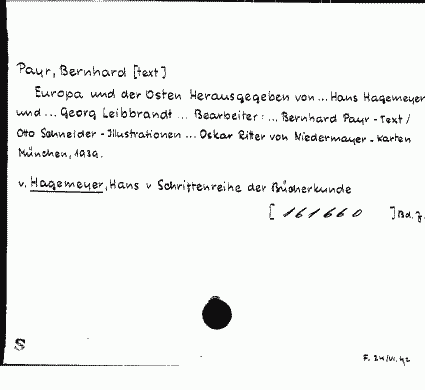 Payr, Bernhard [text]
Europa und der Osten Herausgegeben von ... Hans Hagemeyer
und ... Georg Leibbrandt ... Bearbeiter: ... Bernhard Payr - Text /
Otto Schneider - Illustrationen ... Oskar Ritter von Niedermayer - Karten
München, 1939.
v. Hagemeyer, Hans v Schriftenreihe der Bücherkunde
[ 161660 ] Bd. 7.
S
F. 24/VI. 42